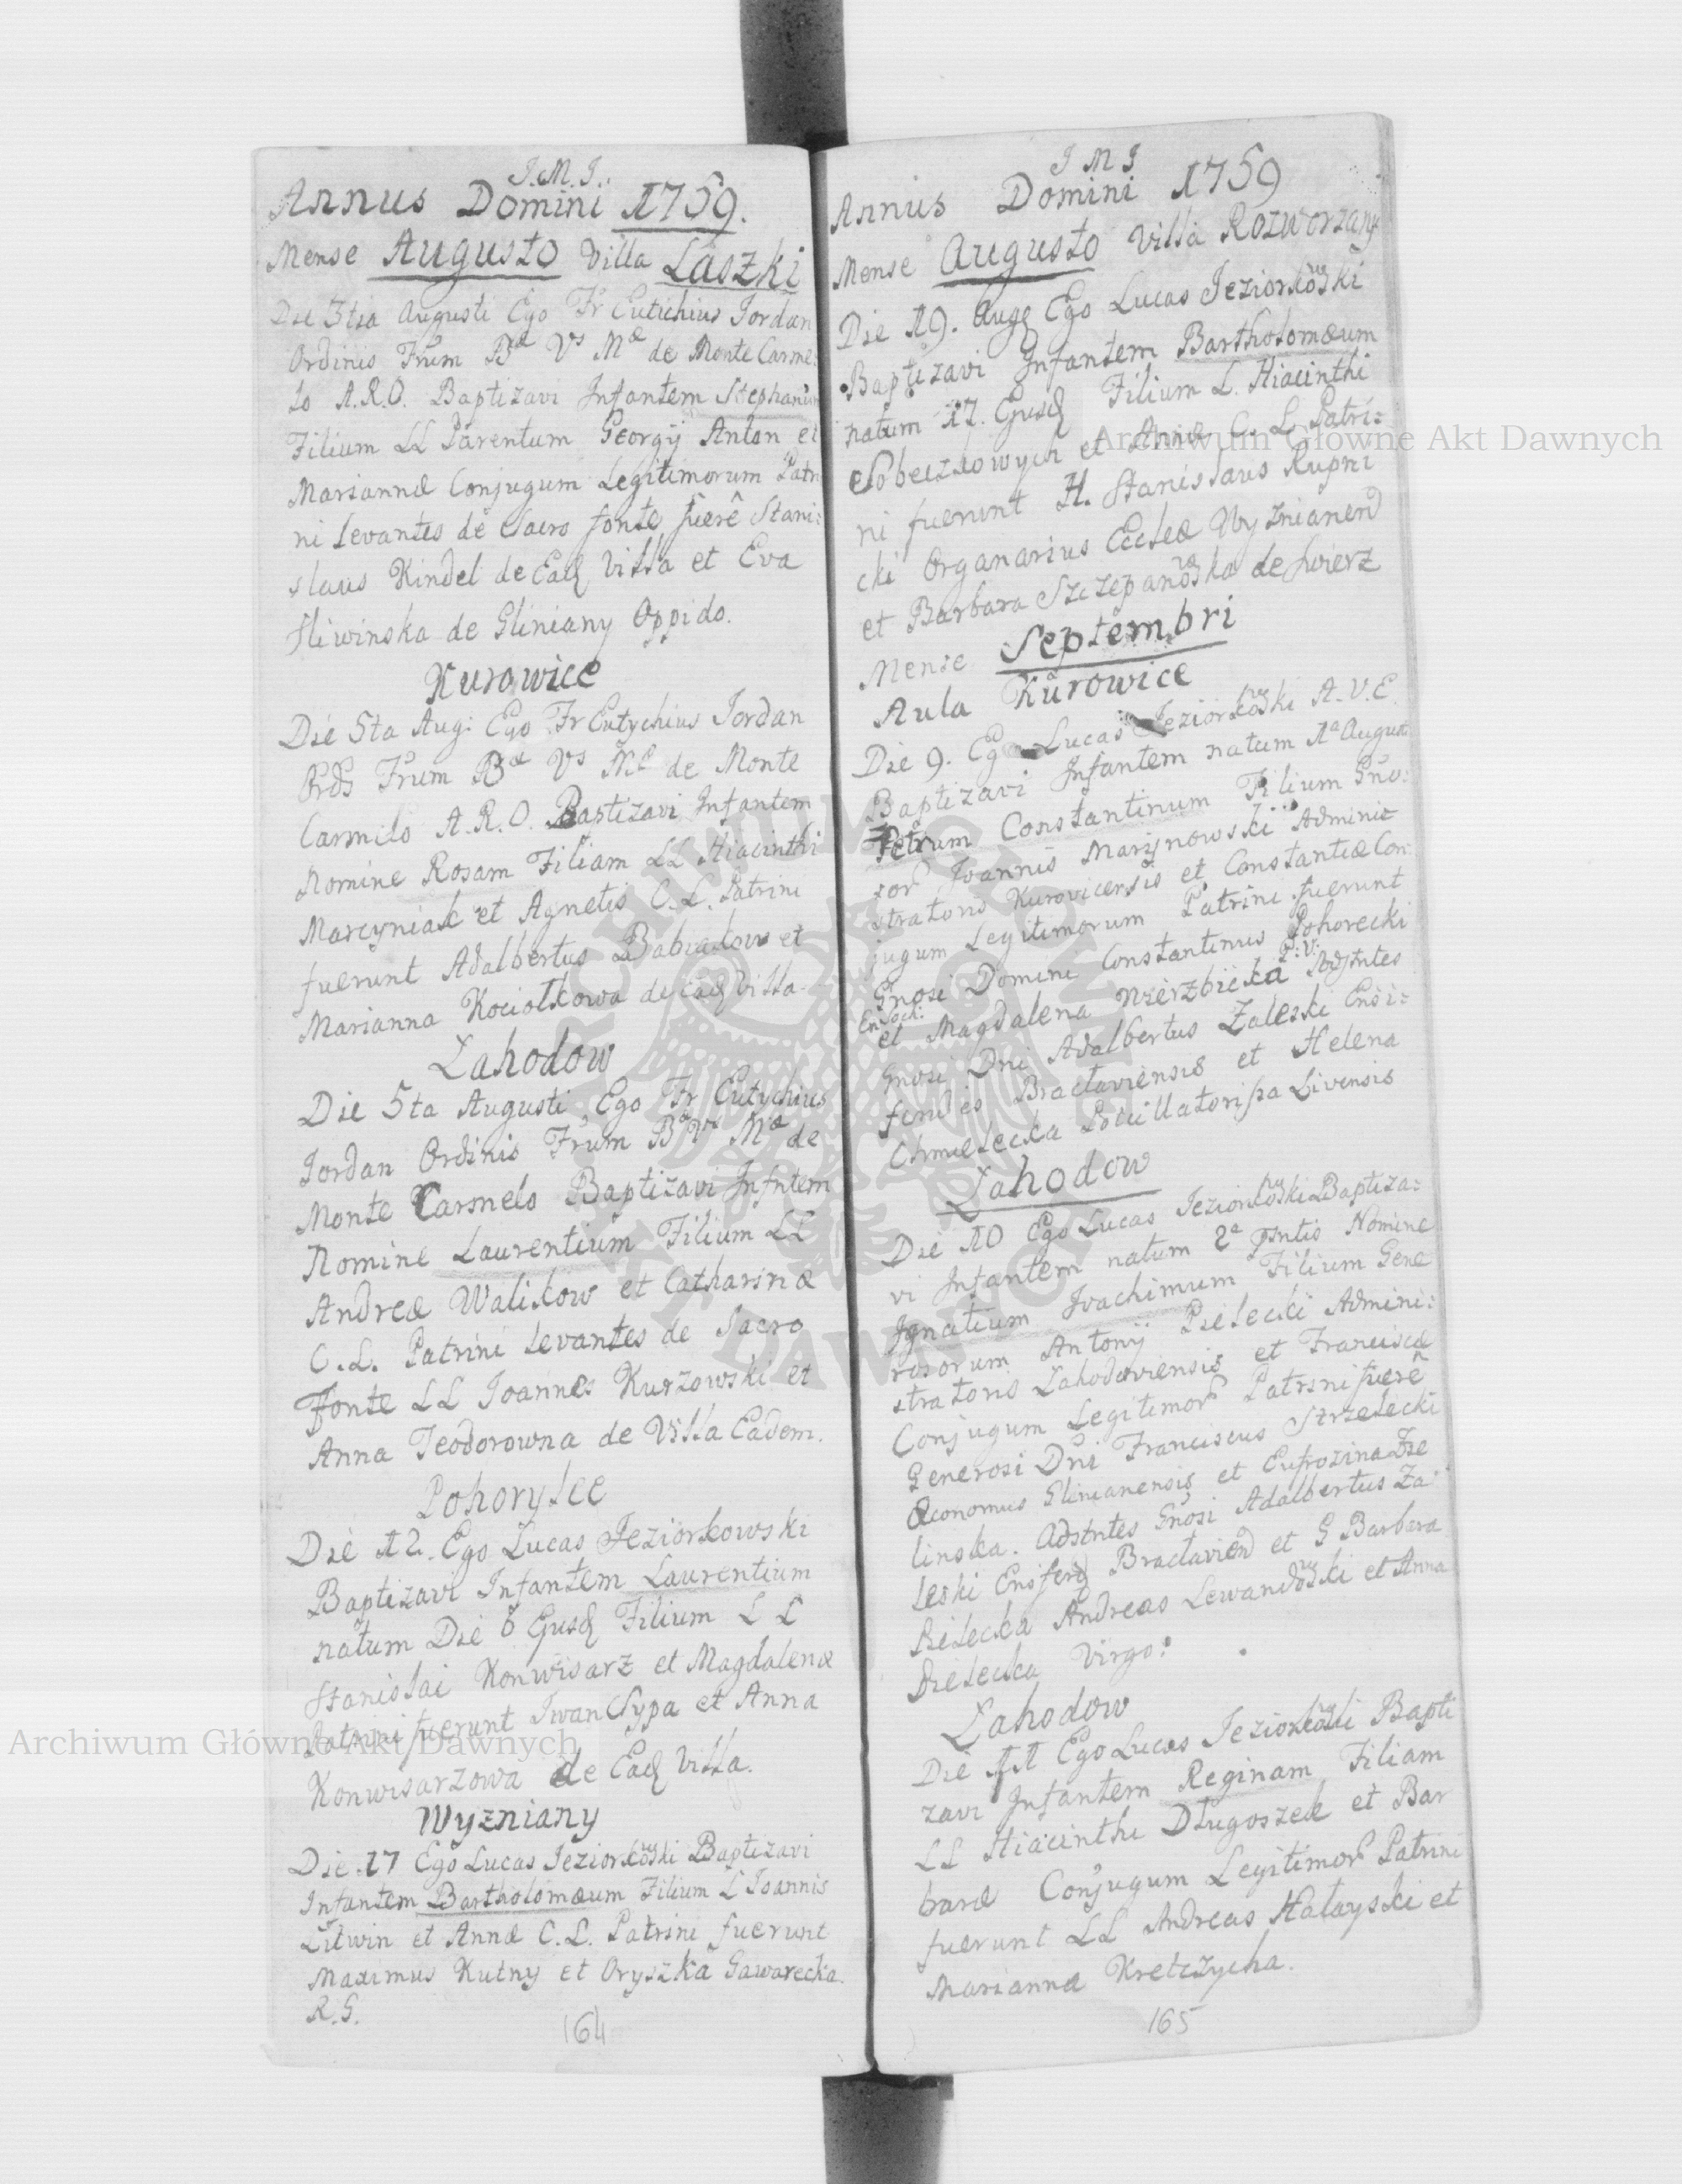 J.M.J.
Annus Domini 1759.
Mense Augusto Villa Laszki
Die 3tia Augusti Ego Fr Eutichius Jordan
Ordinis Frum Bæ Vs Mæ de Monte Carme:
lo A.R.O. Baptizavi Infantem Stephanum
Filium LL Parentum Georgij Anton et
Mariannæ Conjugum Legitimorum Patri
ni levantes de Sacro fonte fuerê Stani:
slaus Kindel de Eadę Villa et Eva
Sliwinska de Gliniany Oppido.
Kurowice
Die 5ta Aug: Ego Fr Eutychius Jordan
Ords Frum Bæ Vs Mæ de Monte
Carmelo A.R.O. Baptizavi Infantem
Nomine Rosam Filiam LL Hiacinthi
Marcyniak et Agnetis C.L. Patrini
fuerunt Adalbertus Babiakow et
Marianna Kociołkowa de eadę Villa.
Zahodow
Die 5ta Augusti Ego Fr Eutychius
Jordan Ordinis Frum Bæ Vs Mæ de
Monte Carmelo Baptizavi Infntem
Nomine Laurentium Filium LL
Andreæ Walikow et Catharinæ
C.L. Patrini levantes de Sacro
Fonte LL Joannes Kurzowski et
Anna Teodorowna de Villa Eadem.
Pohorylce
Die 12. Ego Lucas Jeziorkowski
Baptizavi Infantem Laurentium
natum Die 6 Ejusd Filium L L
Stanislai Konwisarz et Magdalenæ
Patrini fuerunt Iwan Sypa et Anna
Konwisarzowa de Eadę Villa.
Wyzniany
Die 17 Ego Lucas Jeziorkowski Baptizavi
Infantem Bartholomæum Filium L Joannis
Litwin et Annæ C.L. Patrini fuerunt
Maximus Kutny et Oryszka Gawarecka.
R.G.
164
J M J
Annus Domini 1759
Mense Augusto Villa Rozworzany
Die 19. Augę Ego Lucas Jeziorkowski
Baptizavi Infantem Bartholomæum
natum 17. Ejusd Filium L. Hiacinthi
Sobeczkowych et Annæ C. L. Patri:
ni fuerunt H. Stanislaus Rupni
cki Organarius Ecclæ Wyznianen
et Barbara Szczepanowska de Swierz
Mense Septembri
Aula Kurowice
Die 9. Ego Lucas Jeziorkowski A.V.E.
Baptizavi Infantem natum 1a Augusti
Petrum Constantinum Filium Gno:
sor Joannis Maryjnowski Admini
stratoris Kurovicensis et Constantiæ Con:
jugum Legitimorum Patrini fuerunt
Gnosi Domini Constantinus Pohorecki
En: Poch: P:V:
et Magdalena Wierzbicka Adstntes
Gnosi Dni Adalbertus Zaleski Ensi:
ferides Bractaviensis et Helena
Chmielecka Pocillatorissa Livensis
Zahodow
Die 10 Ego Lucas Jeziorkowski Baptiza:
vi Infantem natum 2a Psntis Nomine
Ignatium Joachimum Filium Gene
rosorum Antonij Bielecki Admini:
stratoris Zahodoviensis et Franciscæ
Conjugum Legitimor Patrini fuerê
Generosi Dni Franciscus Strzelecki
Œconomus Glinianensis et Eufrozina Zie
linska. Adstntes Gnosi Adalbertus Za
leski Ensifer Bractavien et G Barbara
Bielecka Andreas Lewandowski et Anna
Bielecka Virgo.
Zahodow
Die 11 Ego Lucas Jeziorkowski Bapti
zavi Infantem Reginam Filiam
LL Hiacinthi Długoszek et Bar
baræ Conjugum Legitimor Patrini
fuerunt LL Andreas Hałayski et
Marianna Kretczycha.
165
Archiwum Główne Akt Dawnych
Archiwum Główne Akt Dawnych
ARCHIWUM GŁÓWNE
AKT DAWNYCH